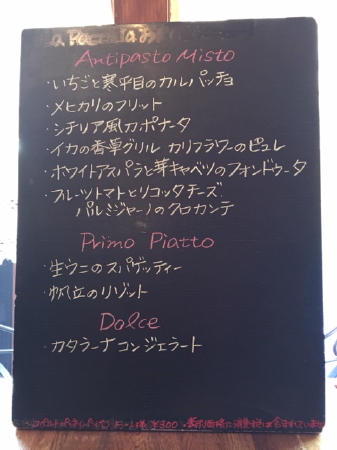 Antipasto Misto
・いちごと寒平目のカルパッチョ
・メヒカリのフリット
・シチリア風カポナータ
・イカの香草グリル カリフラワーのピュレ
・ホワイトアスパラと芽キャベツのフォンドゥータ
・フルーツトマトとリコッタチーズ
パルミジャーノのクロカンテ
Primo Piatto
・生ウニのスパゲッティー
・帆立のリゾット
Dolce
・カタラーナコンジェラート
お一人様 ¥300 ・表示価格に消費税は含まれていませ